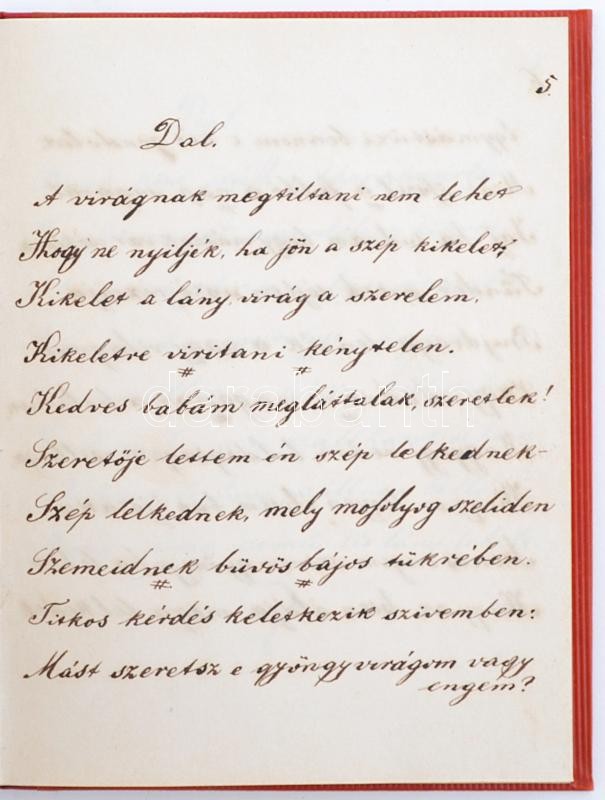 5.
Dal.
A virágnak megtiltani nem lehet
Hogy ne nyiljék, ha jön a szép kikelet;
Kikelet a lány virág a szerelem,
Kikeletre viritani kénytelen.
# #
Kedves babám megláttalak, szeretlek!
Szeretője lettem én szép lelkednek-
Szép lelkednek, mely mosolyog szeliden
Szemeidnek büvös bájos tükrében.
# #
Titkos kérdés keletkezik szivemben:
Mást szeretsz e gyöngyvirágom vagy
engem?
darabanth.com